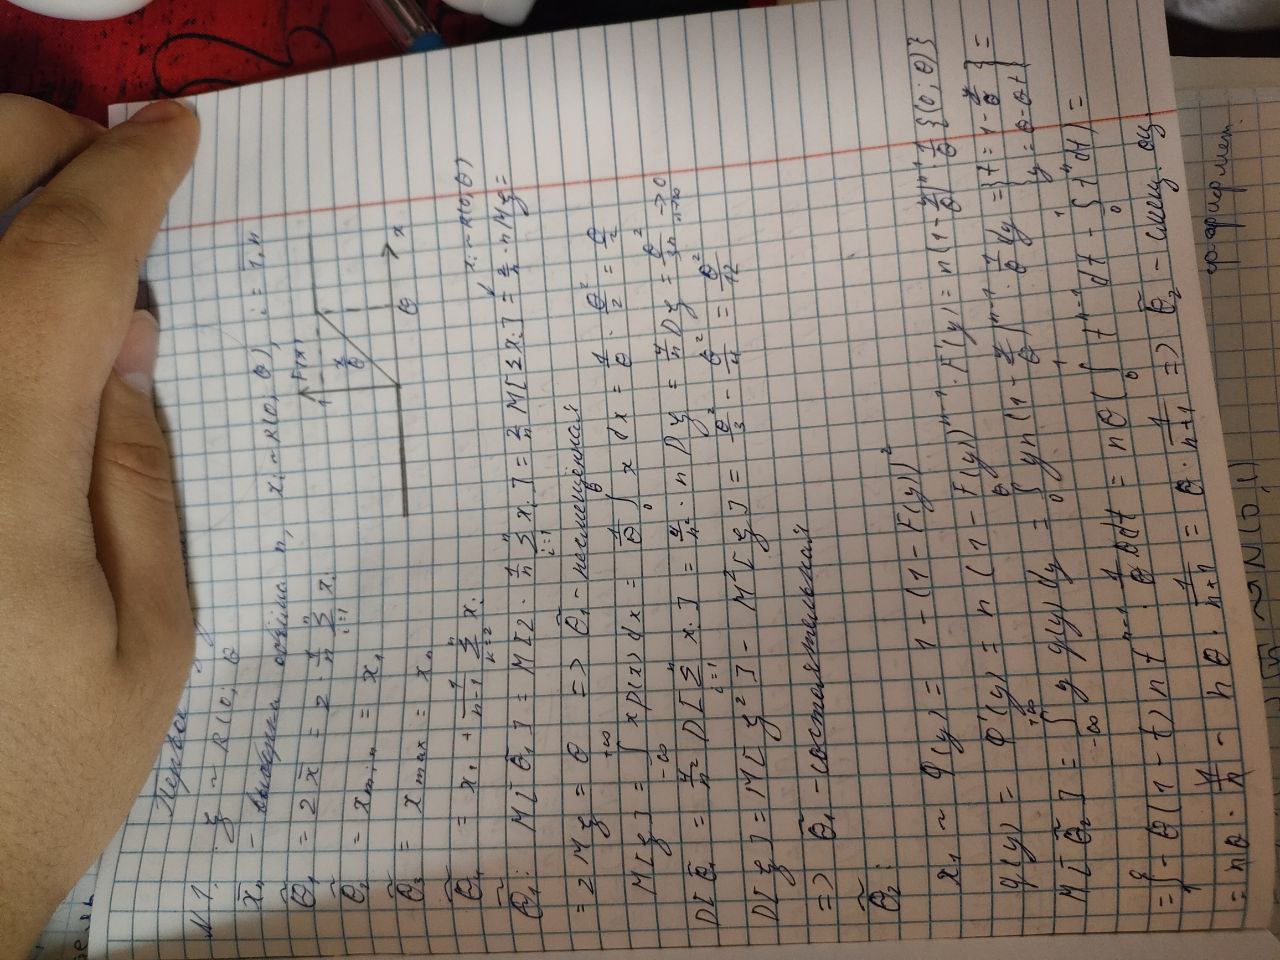 N1. ξ ~ R(0; θ)
x̄ₙ - выборка объёма n, xᵢ ~ R(0; θ), i = 1,n
F(x)
1
x/θ
θ
x
θ̃₁ = 2x̄ = 2 · 1/n Σᵢ₌₁ⁿ xᵢ
θ̃₂ = xₘᵢₙ = x₁
θ̃₃ = xₘₐₓ = xₙ
= x₁ + 1/(n-1) Σₖ₌₂ⁿ xᵢ
xᵢ ~ R(0; θ)
θ̃₁: M[θ̃₁] = M[2 · 1/n Σᵢ₌₁ⁿ xᵢ] = 2/n M[Σ xᵢ] = 2/n · n Mξ =
= 2Mξ = θ => θ̃₁ - несмещённая
M[ξ] = ∫₋∞⁺∞ x p(x) dx = 1/θ ∫₀^θ x dx = 1/θ · θ²/2 = θ/2
D[θ̃₁] = 4/n² D[Σᵢ₌₁ⁿ xᵢ] = 4/n² · n Dξ = 4/n Dξ = θ²/3n → 0 n→∞
D[ξ] = M[ξ²] - M²[ξ] = θ²/3 - θ²/4 = θ²/12
=> θ̃₁ - состоятельная
θ̃₂:
x₁ ~ φ(y) = 1 - (1 - F(y))²
φ(y) = φ'(y) = n (1 - F(y))ⁿ⁻¹ · F'(y) = n(1 - y/θ)ⁿ⁻¹ 1/θ {(0; θ)}
M[θ̃₂] = ∫₋∞⁺∞ y φ(y) dy = ∫₀^θ yn (1 - y/θ)ⁿ⁻¹ · 1/θ dy = {t = 1 - y/θ, y = θ - θt} =
= ∫₁⁰ - θ(1 - t) n tⁿ⁻¹ · 1/θ θdt = nθ(∫₀¹ tⁿ⁻¹ dt - ∫₀¹ tⁿ dt) =
= nθ · 1/n - nθ · 1/(n+1) = θ · 1/(n+1) => θ̃₂ - смещ. оц.